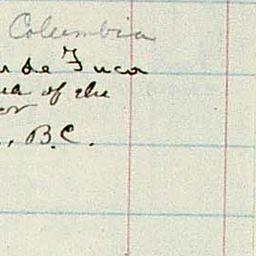 Columbia
de Fuca
of the
, B.C.